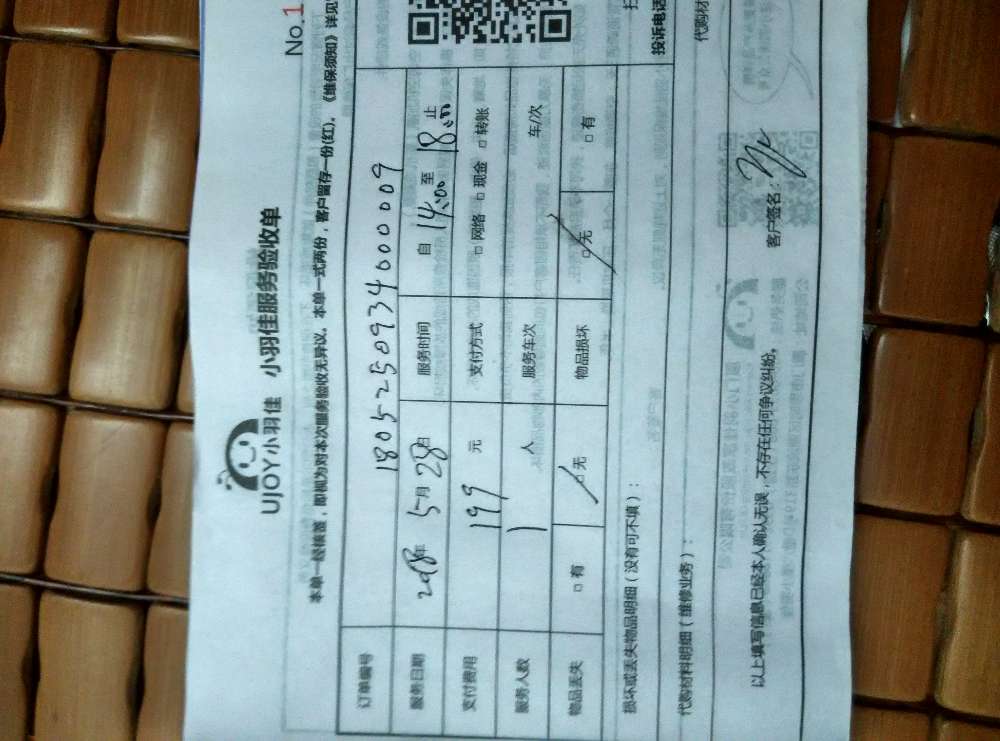 No.1
UJOY小羽佳 小羽佳服务验收单
本单一经核签，即视为对本次服务验收无异议。本单一式两份，客户留存一份(红)。《维保须知》详见
订单编号 180525093400009
服务日期 2018年 5月 28日 服务时间 自 14:00 至 18:00 止
支付费用 199 元 支付方式 □网络 □现金 □转账
服务人数 1 人 服务车次 车/次
物品丢失 □有 □无 物品损坏 □无 □有
损坏或丢失物品明细（没有可不填）：
投诉电话
代购材料明细（维修业务）：
代购材
以上填写信息已经本人确认无误，不存在任何争议纠纷。 客户签名：